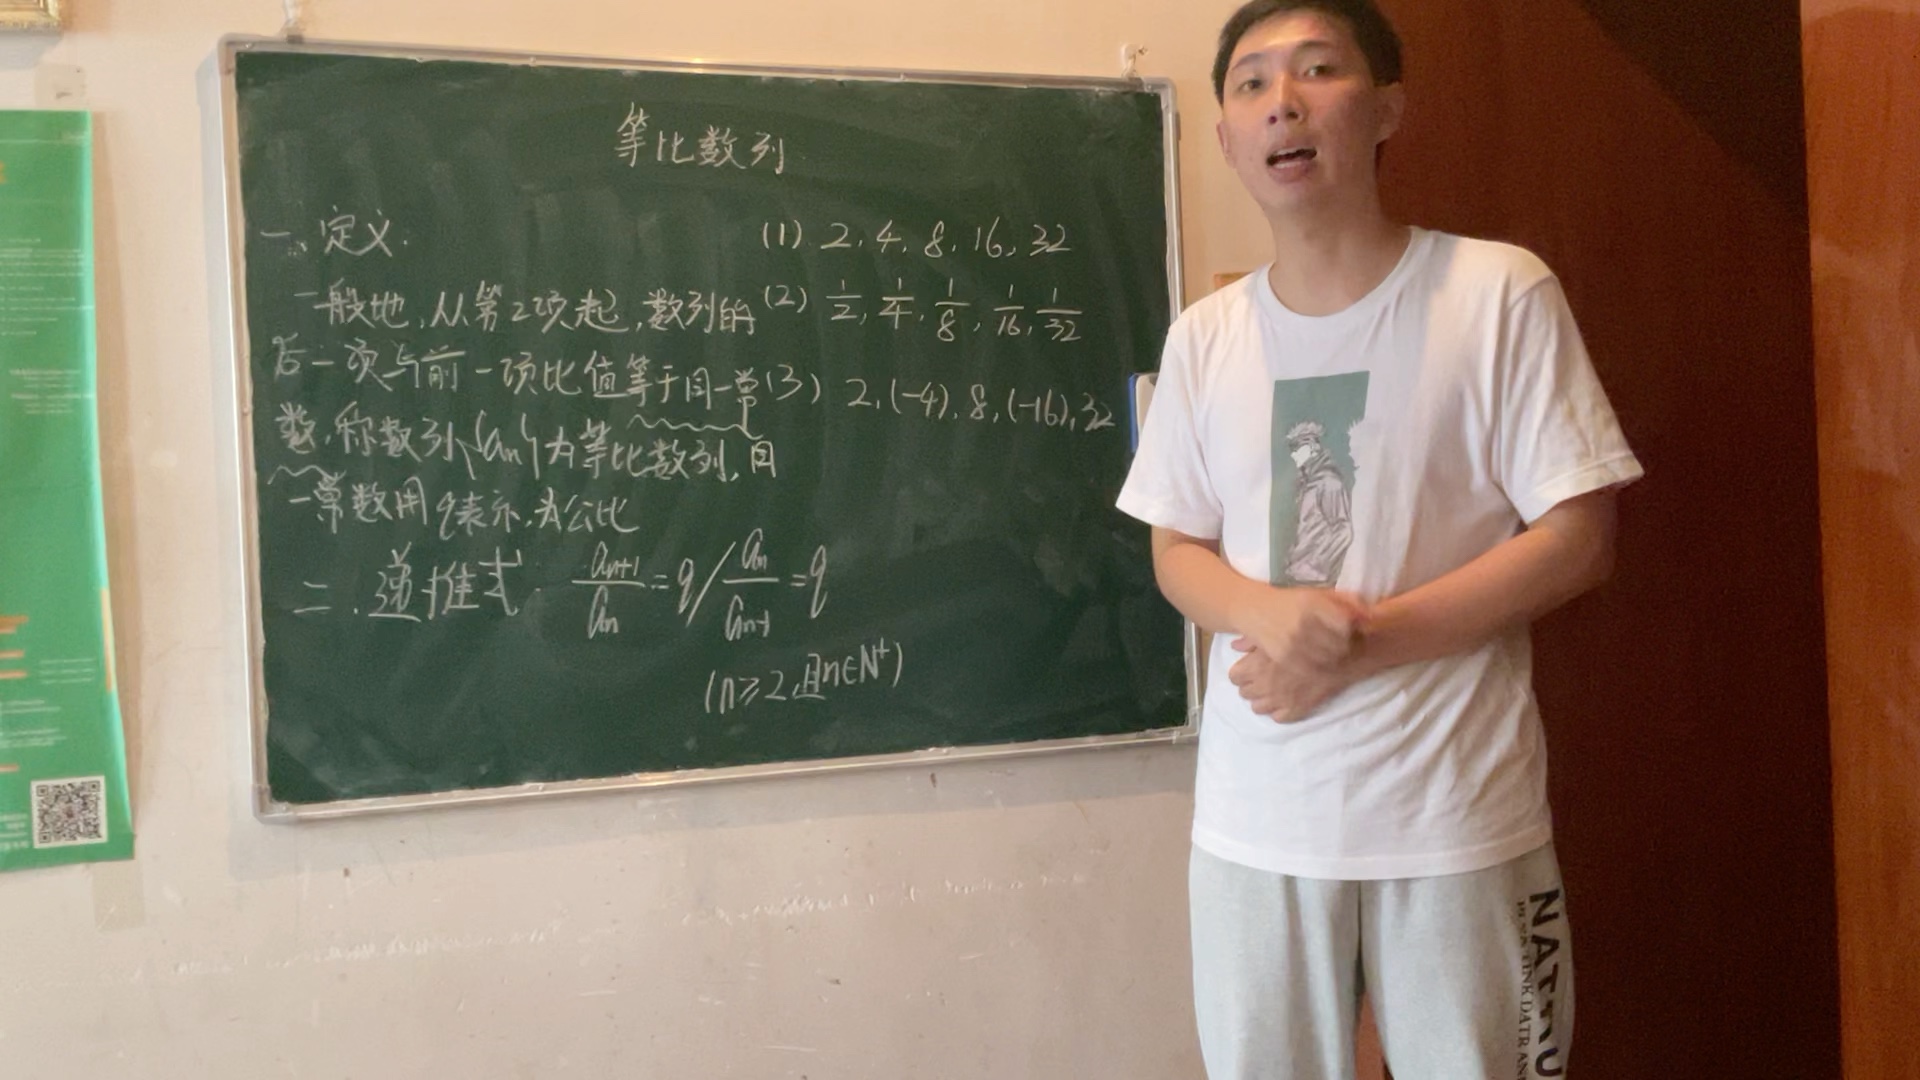 等比数列
一、定义.
一般地,从第2项起,数列的
后一项与前一项比值等于同一常
数,称数列{an}为等比数列,同
一常数用q表示,为公比
(1) 2, 4, 8, 16, 32
(2) 1/2, 1/4, 1/8, 1/16, 1/32
(3) 2, (-4), 8, (-16), 32
二.递推式. an+1/an=q / an/an-1=q
(n≥2且n∈N+)